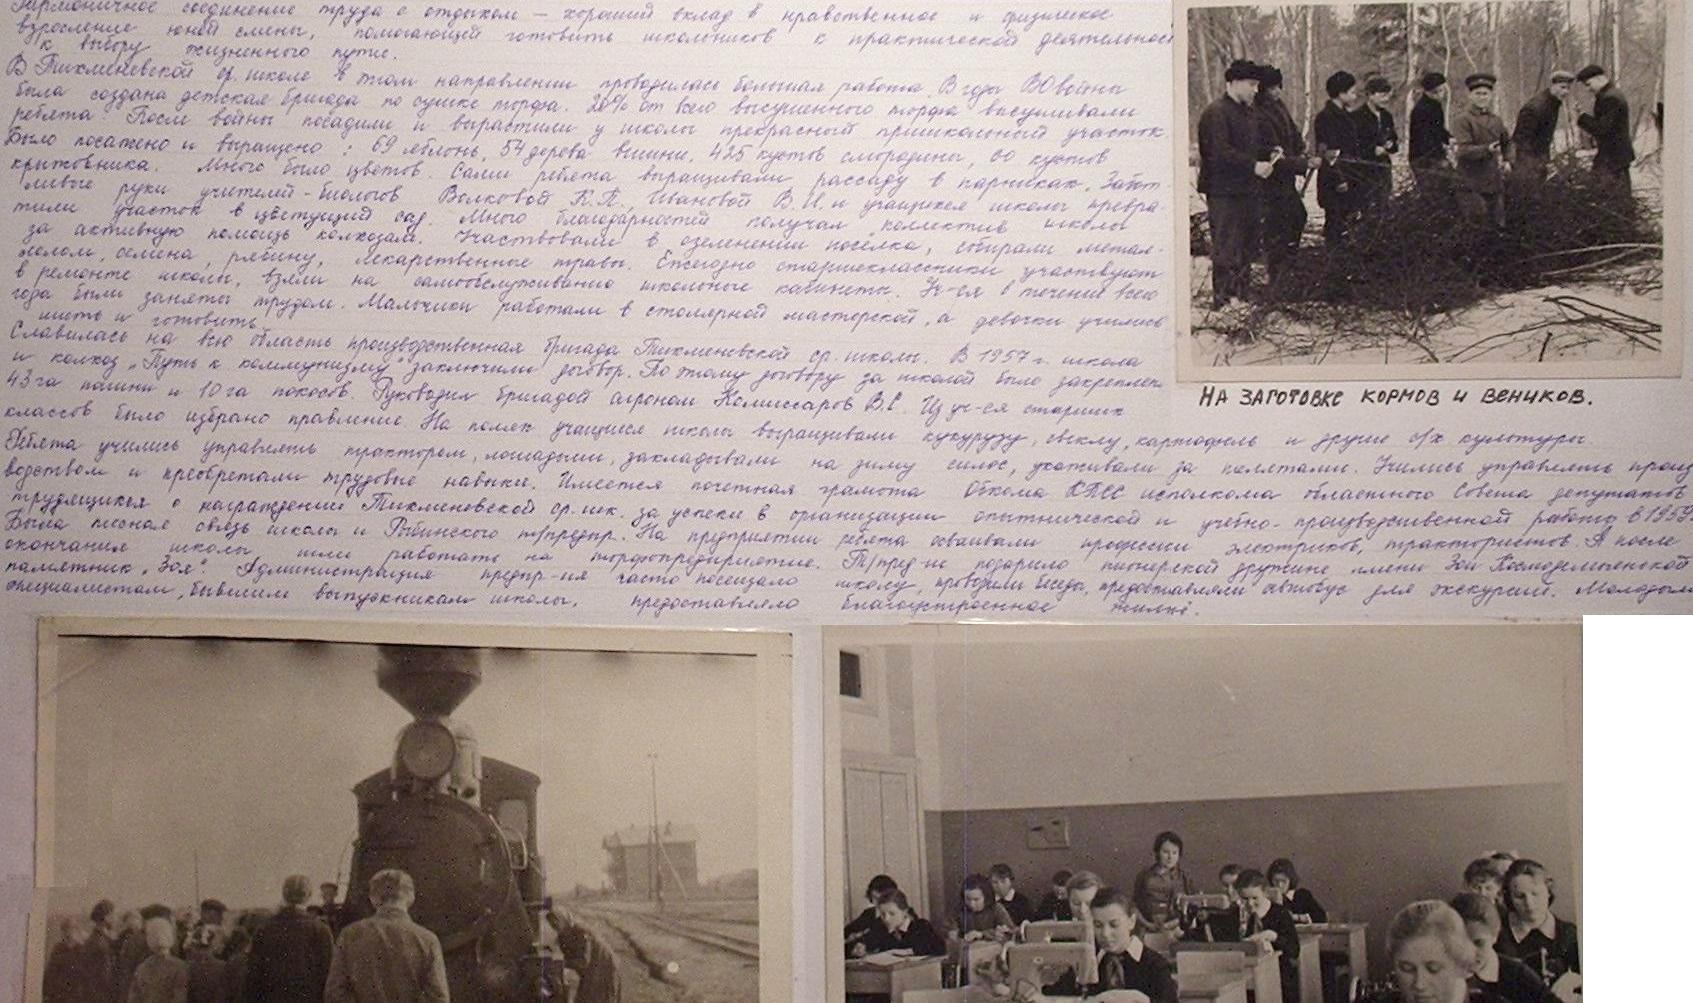 Гармоничное соединение труда с отдыхом – хороший вклад в нравственное и физическое
взросление юной смены, помогающей готовить школьников к практической деятельности
к выбору жизненного пути.
В Тихменевской ср. школе в этом направлении проводилась большая работа. В годы ВОвойны
была создана детская бригада по сушке торфа. 20% от всего высушенного торфа высушивали
ребята. После войны посадили и вырастили у школы прекрасный пришкольный участок.
Было посажено и выращено: 69 яблонь, 54 дерева вишни, 425 кустов смородины, 60 кустов
крыжовника. Много было цветов. Сами ребята выращивали рассаду в парниках. Забот-
ливые руки учителей-биологов Волковой К.П., Ивановой В.И. и учащихся школы превра-
тили участок в цветущий сад. Много благодарностей получал коллектив школы
за активную помощь колхозам. Участвовали в озеленении поселка, собирали метал-
лолом, семена, рябину, лекарственные травы. Ежегодно старшеклассники участвуют
в ремонте школы, взяли на самообслуживание школьные кабинеты. Уч-ся в течение всего
года были заняты трудом. Мальчики работали в столярной мастерской, а девочки учились
шить и готовить.
Славилась на всю область производственная бригада Тихменевской ср. школы. В 1957 г. школа
и колхоз „Путь к коммунизму" заключили договор. По этому договору за школой было закреплен
43 га пашни и 10 га покосов. Руководил бригадой агроном Комиссаров В.С. Из уч-ся старших
классов было избрано правление. На полях учащиеся школы выращивали кукурузу, свеклу, картофель и другие с/х культуры.
Ребята учились управлять трактором, лошадьми, закладывали на зиму силос, ухаживали за телятами. Учились управлять произ
водством и преобретали трудовые навыки. Имеется почетная грамота Обкома КПСС исполкома областного Совета депутатов
трудящихся о награждении Тихменевской ср. шк. за успехи в организации опытнической и учебно-производственной работы в 1959
Была тесная связь школы и Рыбинского т/предпр. На предприятии ребята осваивали профессии электриков, трактористов. А после
окончания школы шли работать на торфопредприятие. Т/пред-ие подарило пионерской дружине имени Зои Космодемьянской
памятник „Зоя". Администрация предпр-ия часто посещало школу, проводили беседы, предоставляли автобус для экскурсий. Молодым
специалистам, бывшим выпускникам школы, предоставляло благоустроенное жильё.
НА ЗАГОТОВКЕ КОРМОВ И ВЕНИКОВ.